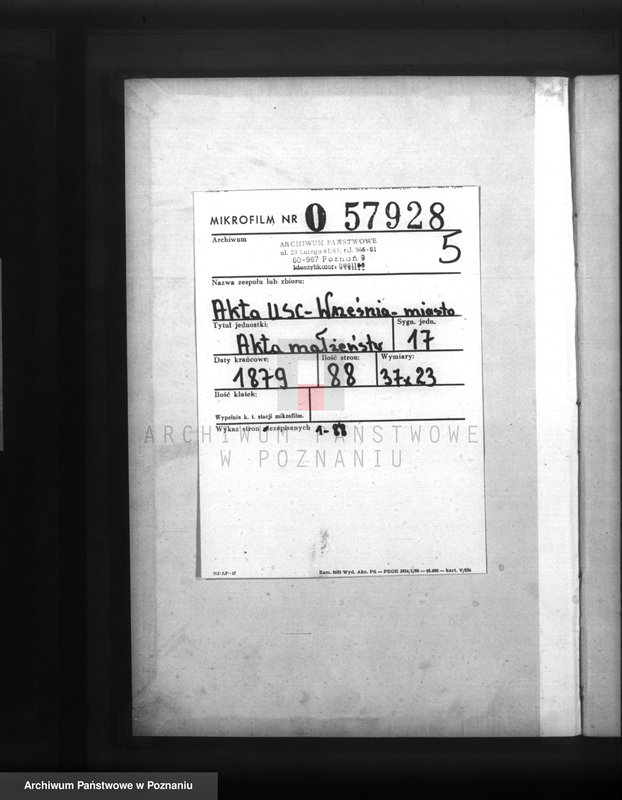 MIKROFILM NR O 57928
Archiwum
ARCHIWUM PAŃSTWOWE
ul. 23 Lutego 41/43, tel. 566-01
60-967 Poznań 9
Identyfikator:
5
Nazwa zespołu lub zbioru:
Akta USC - Września - miasto
Tytuł jednostki:
Sygn. jedn.
Akta małżeństw
17
Daty krańcowe:
Ilość stron:
Wymiary:
1879
88
37x23
Ilość klatek:
Wypełnia k. t. stacji mikrofilm.
Wykaz stron niezapisanych 1-88
ARCHIWUM PAŃSTWOWE
W POZNANIU
Archiwum Państwowe w Poznaniu